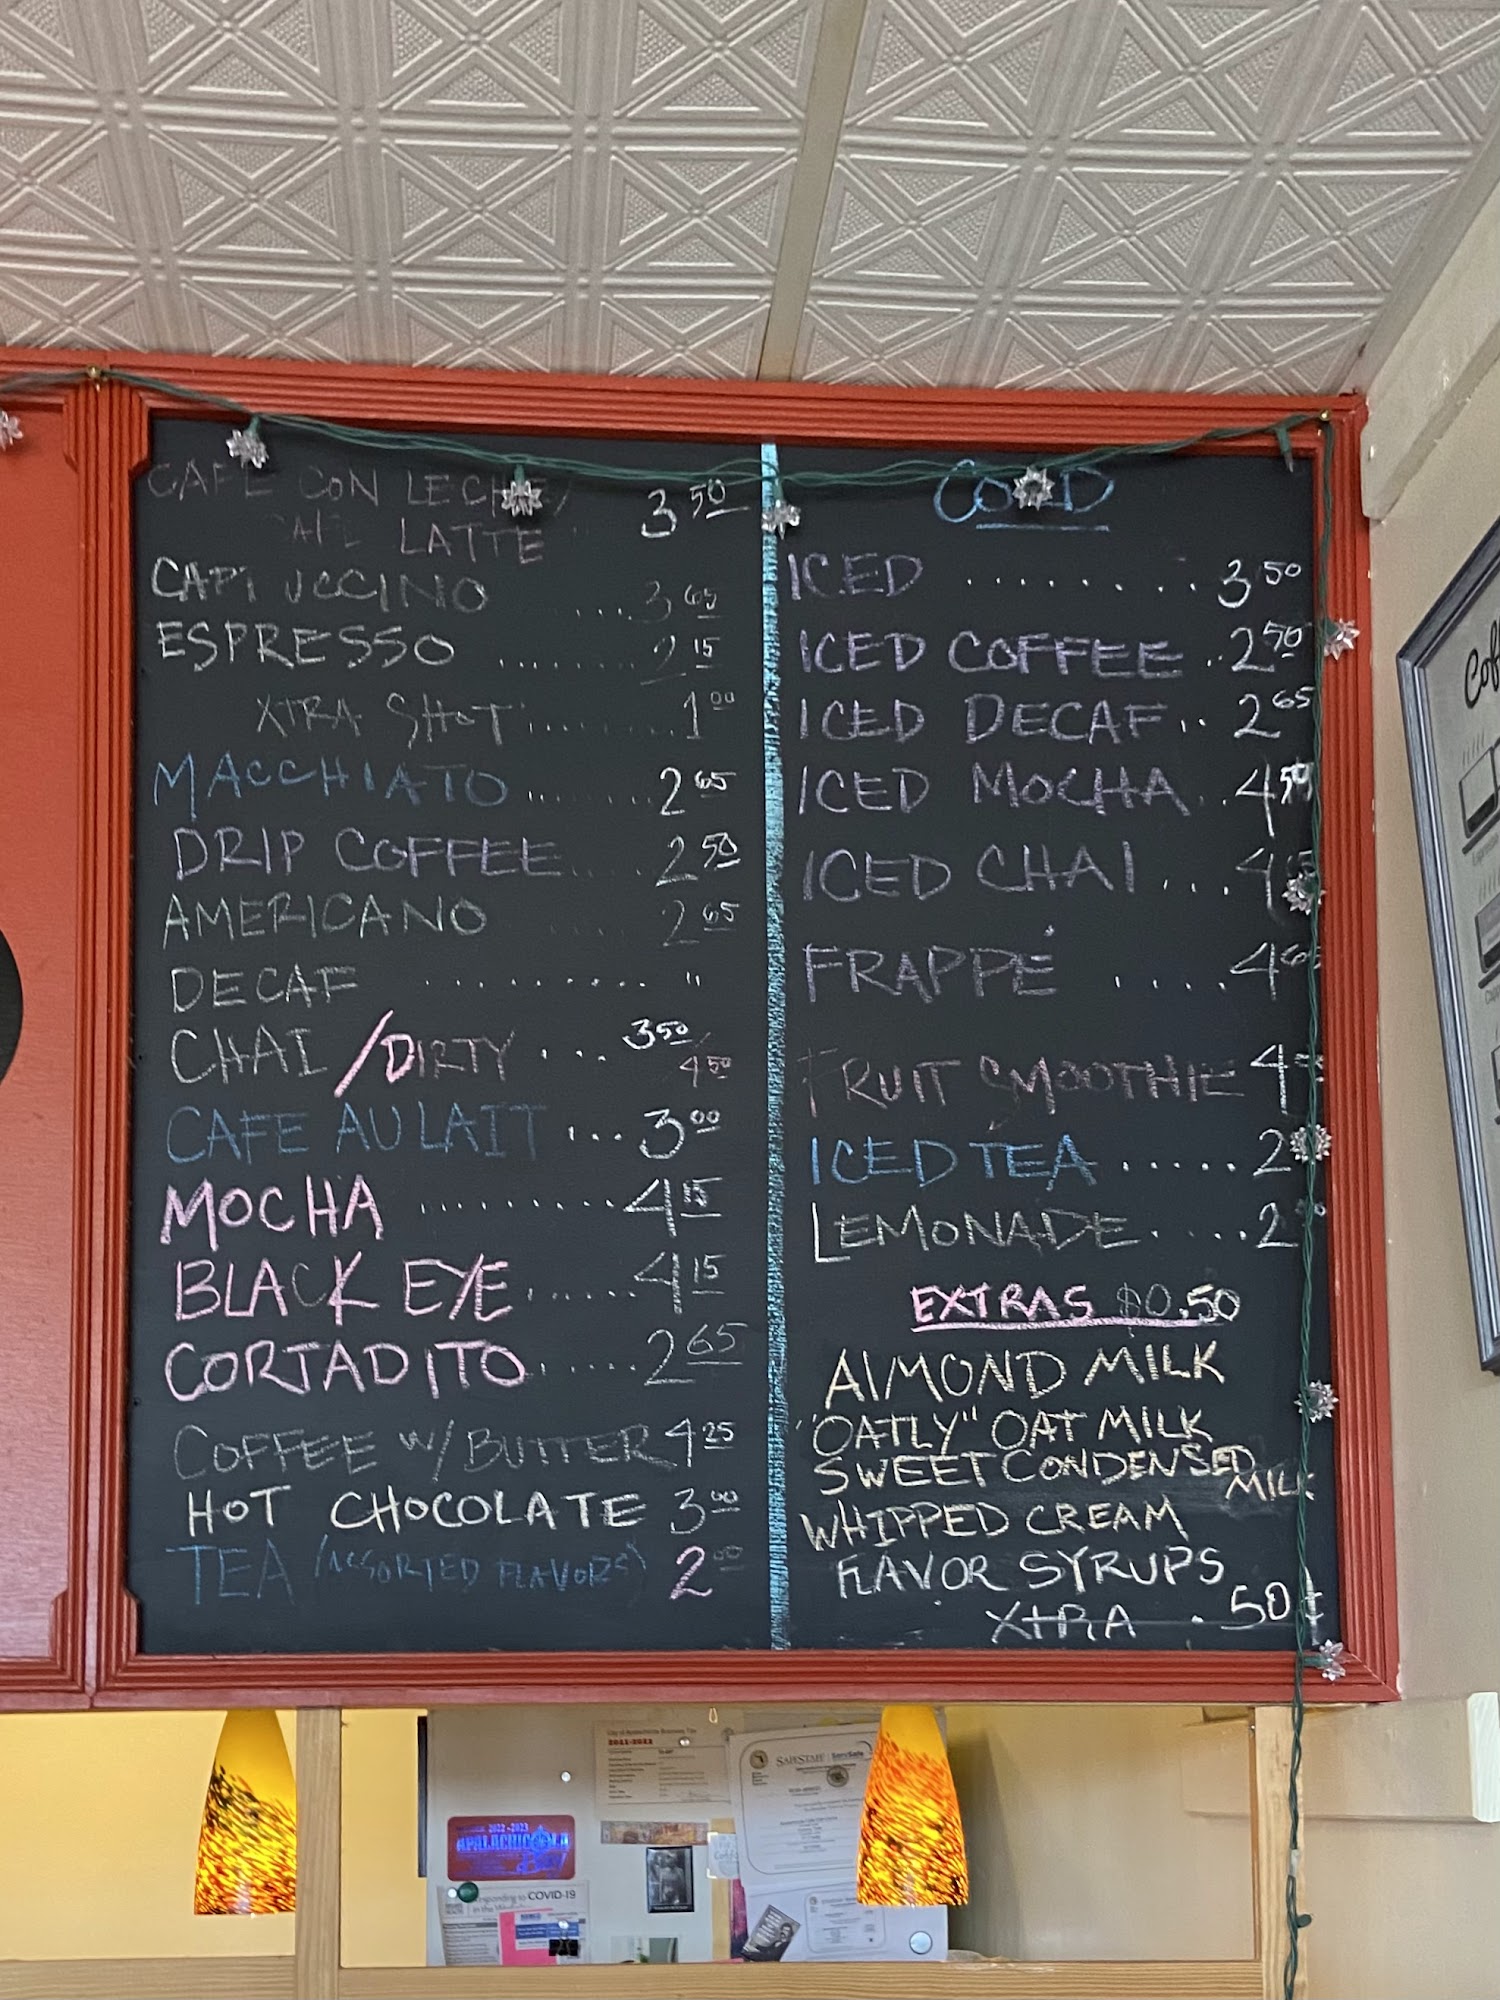 CAFE CON LECHE/
CAFE LATTE 3.50
CAPPUCCINO ....3.65
ESPRESSO ........2.15
XTRA SHOT ........1.00
MACCHIATO ........2.65
DRIP COFFEE.....2.50
AMERICANO .... 2.65
DECAF .......... "
CHAI /DIRTY ... 3.50/
4.50
CAFE AU LAIT ... 3.00
MOCHA ..........4.15
BLACK EYE ......4.15
CORTADITO ......2.65
COFFEE W/BUTTER 4.25
HOT CHOCOLATE 3.00
TEA (ASSORTED FLAVORS) 2.00
COLD
ICED ......... 3.50
ICED COFFEE ..2.50
ICED DECAF .. 2.65
ICED MOCHA ..4.50
ICED CHAI ...
FRAPPÉ ....
FRUIT SMOOTHIE
ICED TEA .....
LEMONADE .....
EXTRAS $0.50
ALMOND MILK
"OATLY" OAT MILK
SWEET CONDENSED
MILK
WHIPPED CREAM
FLAVOR SYRUPS
XTRA . 50¢
2022-2023
APALACHICOLA
2021-2022
SAFESTAFF ServSafe
Responding to COVID-19